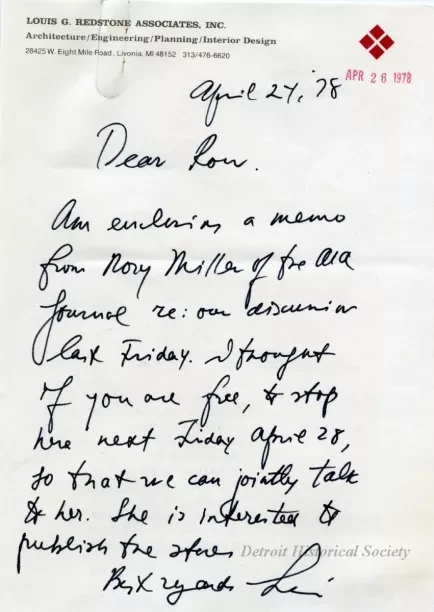 LOUIS G. REDSTONE ASSOCIATES, INC.
Architecture/Engineering/Planning/Interior Design
28425 W. Eight Mile Road, Livonia, MI 48152 313/476-6620
APR 26 1978
April 24, '78
Dear Ron.
Am enclosing a memo
from Nory Miller of the AIA
Journal re: our discussion
last Friday. I thought
if you are free, to stop
here next Friday April 28,
so that we can jointly talk
to her. She is interested to
publish the
Detroit Historical Society
Best regards Lou